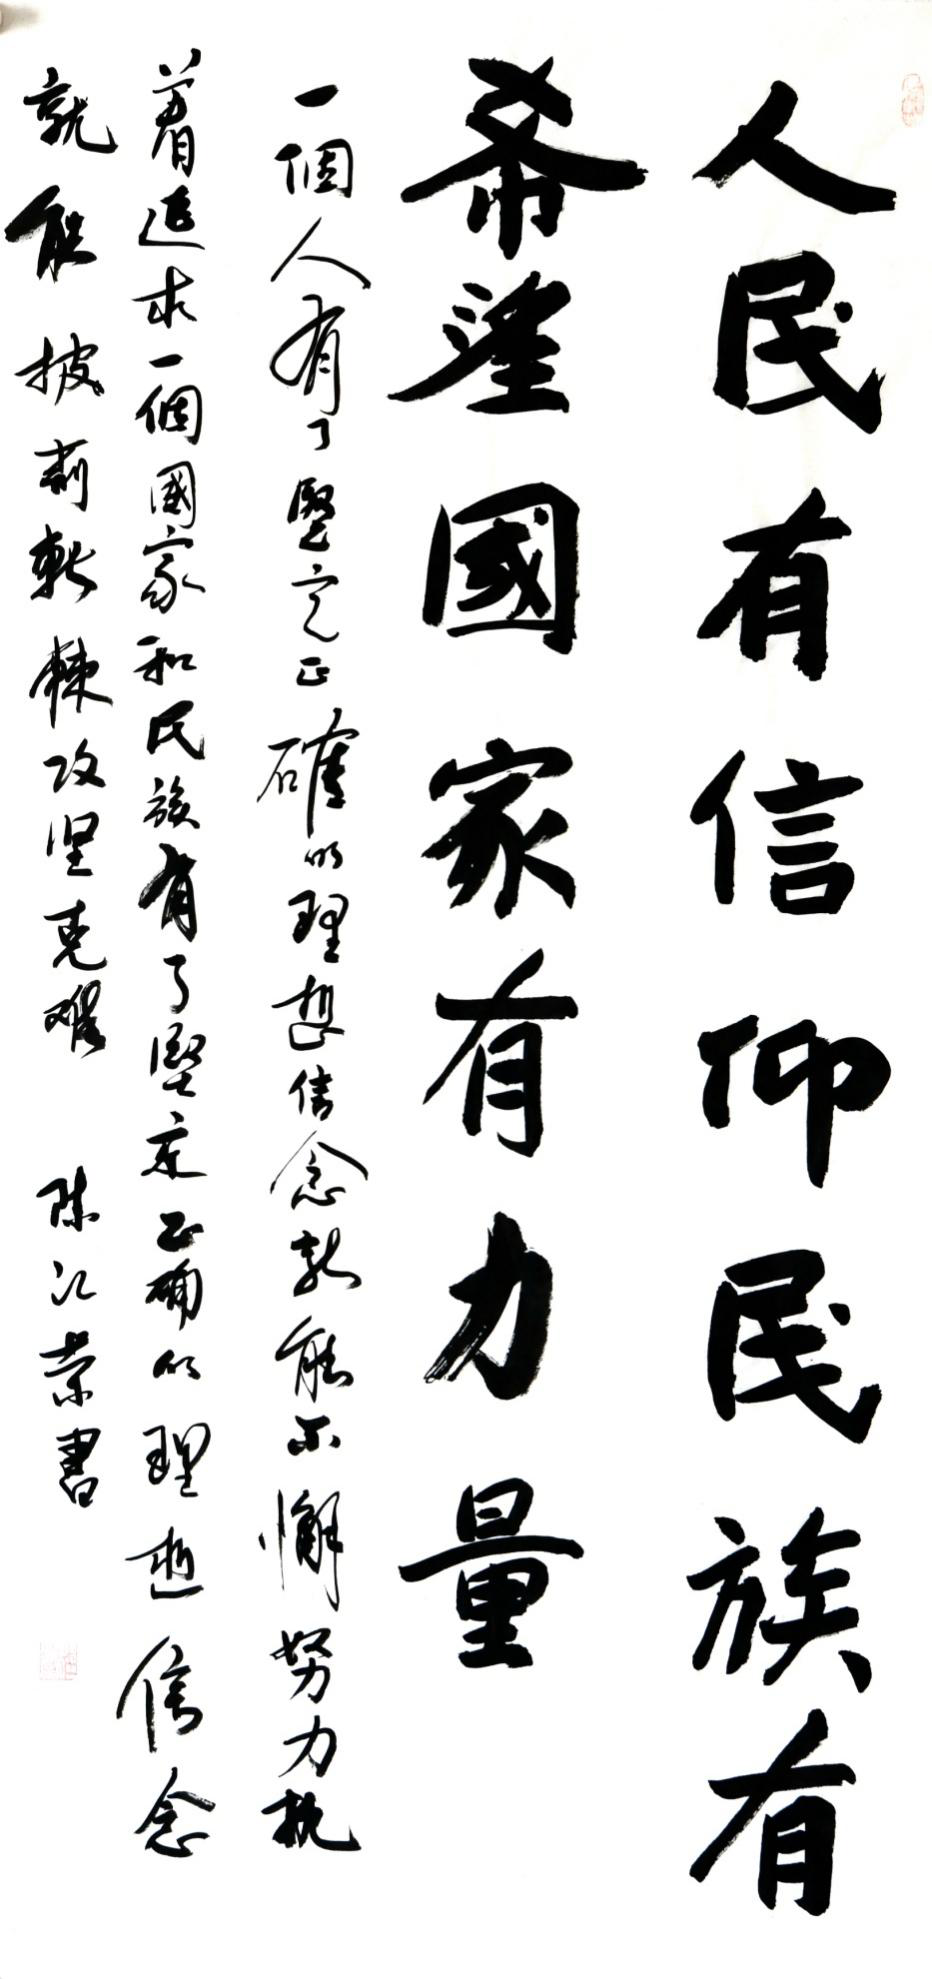 人民有信仰民族有
希望國家有力量
一個人有了堅定正確的理想信念就能不懈努力执
着追求一個國家和民族有了堅定正确的理想信念
就能披荆斬棘攻坚克难 陈江荣書